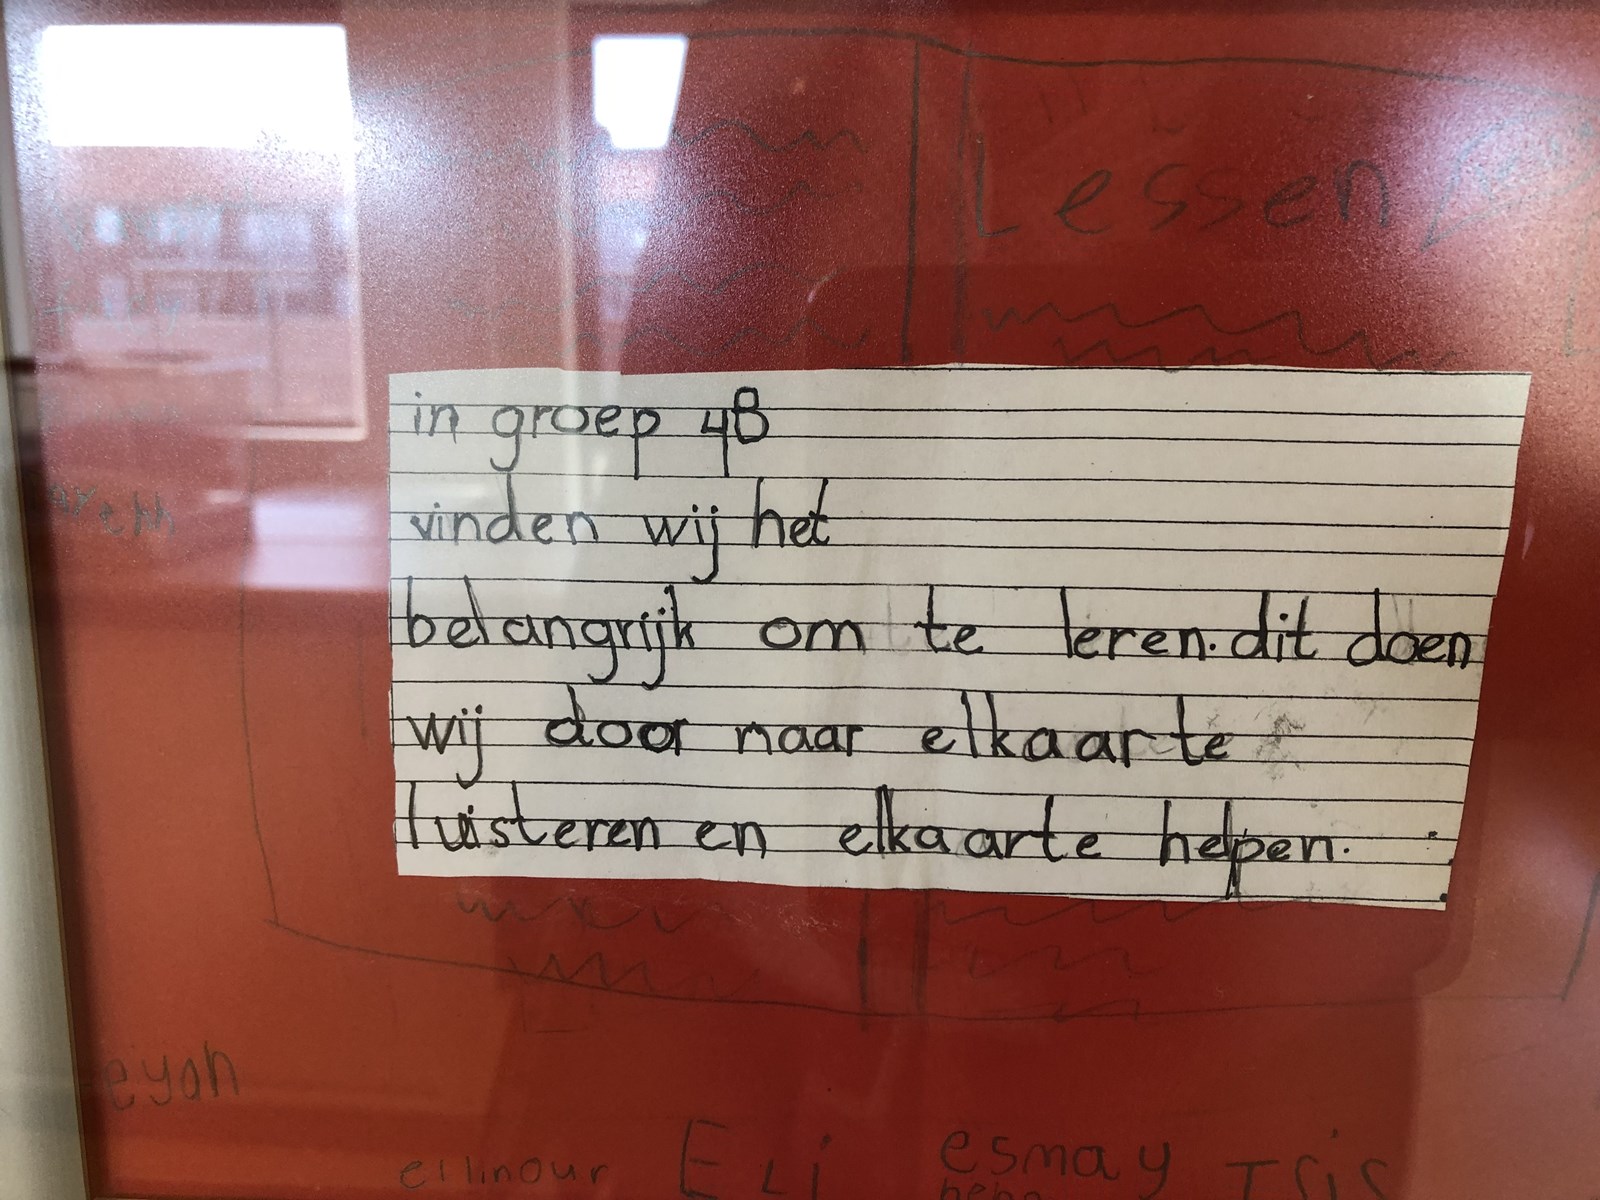 Lessen
in groep 4B
vinden wij het
belangrijk om te leren. dit doen
wij door naar elkaar te
luisteren en elkaar te helpen.
eyah
ellinour ELi esmay Isis